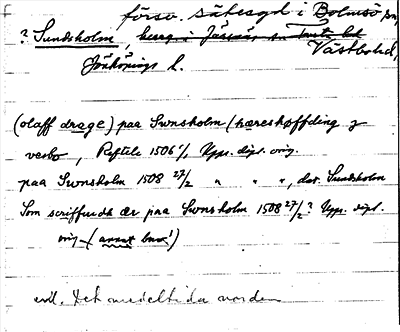 försv. sätesgd i Bolmsö sn,
? Sundsholm, Västbo hd,
Jönköpings l.
(olaff drage) paa Swnsholm (hæreshøffding j
vesbo, Reftele 1506 Upps. dipl. orig.
paa Swnsholm 1508 27/2 " " ", dat. Sundsholm
Som scriffuidh ær paa Swnsholm 1508 27/2? Upps. dipl.
orig (annat brev!)
enl. Det medeltida norden